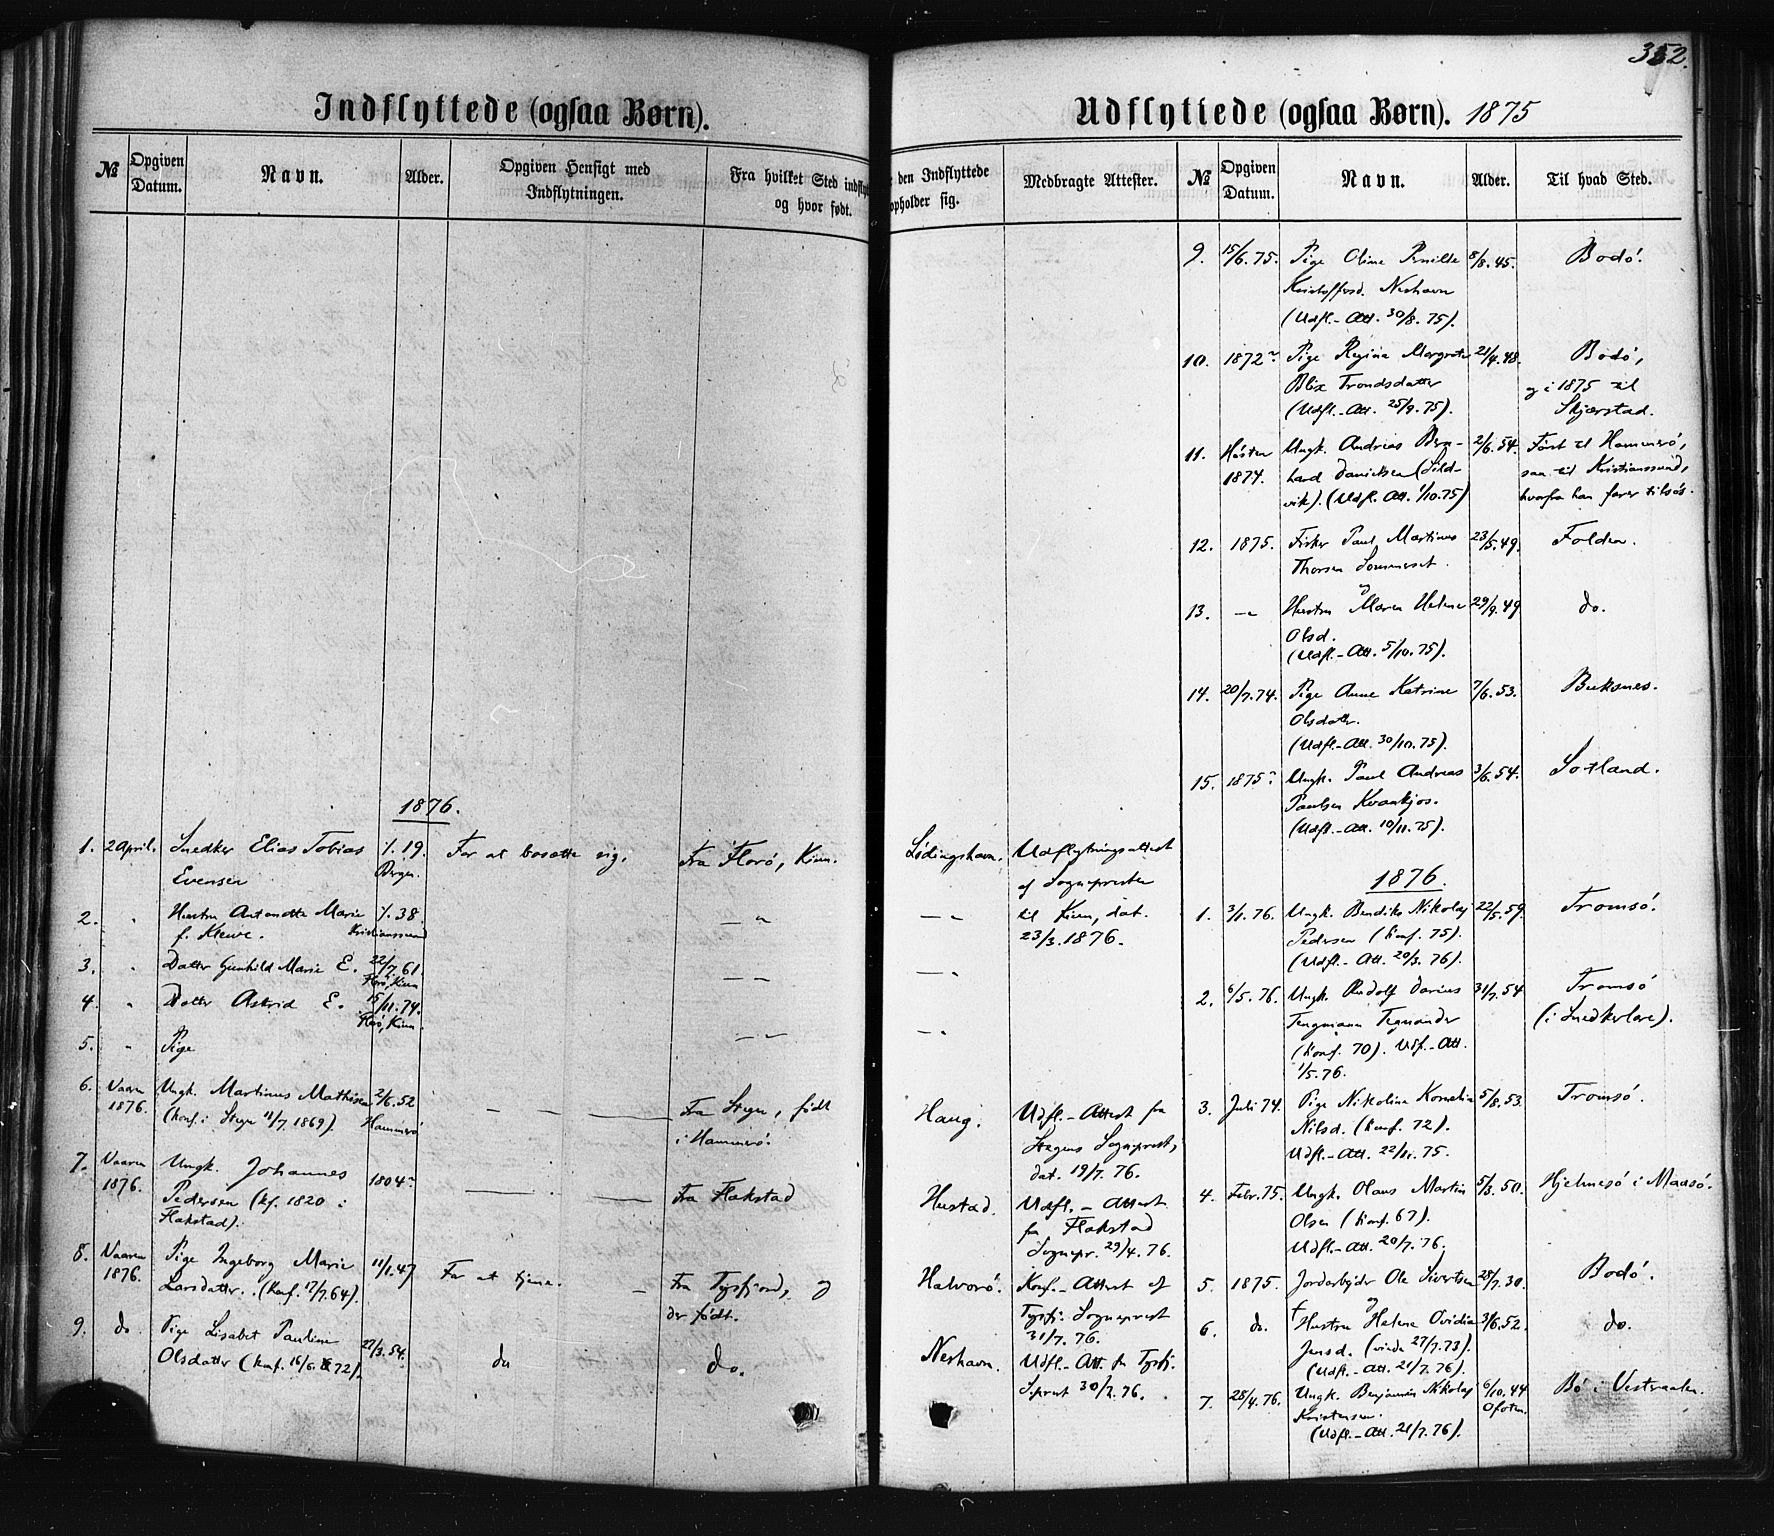 352.
Indflyttede (ogsaa Børn).
№
Opgiven
Datum.
Navn.
Alder.
Opgiven Hensigt med
Indflytningen.
Fra hvilket Sted indfly
og hvor født.
den Indflyttede
opholder sig.
Medbragte Attester.
1876.
1. 2 April. Snedker Elias Tobias 1/1.19. For at bosætte sig. Fra Florø, Kinn. Lødingshavn. Udflytningsattest
Evensen Bergen. af Sognepresten
2. " Hustru Antonette Marie 1/1.38. — " — " til Kinn, dat.
f. Klewe. Kristianssund 23/3.1876.
3. " Datter Gunhild Marie E. 22/7.61. — — — "
Florø, Kinn
4. " Datter Astrid E. 15/11.74.
Florø, Kinn.
5. " Pige — " — "
6. Vaaren Ungk. Martinus Mathisen 2/6.52 — — — Fra Stegen, født Haug. Udfl.-Attest fra
1876. (konf. i Stegen 11/7 1869). Hammerø i Hammerø. Stegens Sogneprest,
dat. 19/7. 76.
7. Vaaren Ungk. Johannes 1804 — — Fra Flakstad Hustad. Udfl.-Attest
1876. Pedersen (kf. 1820 i fra Flakstad
Flakstad). Sognepr. 29/4. 76.
8. Vaaren Pige Ingeborg Marie 11/1.47 For at tjene. — Fra Tysfjord, og Halvorø. Konf.-Attest af
1876. Larsdatter. (konf. 17/7.64). der født. Tysfj. Sogneprest
31/7. 76.
9. do. Pige Lisabet Pauline 27/3.54. do do. Neshavn. Udfl.-Att. fra Tysfj.
Olsdatter (konf. 16/6.72). Sprest 30/7. 76.
Udflyttede (ogsaa Børn). 1875
№
Opgiven
Datum.
Navn.
Alder.
Til hvad Sted.
9. 15/6.75. Pige Oline Pernille 8/8.45. Bodø.
Kristoffersd. Neshavn
(Udfl.-Att. 30/8. 75).
10. 1872 Pige Regina Margrete 21/4.48. Bodø,
Blix Trondsdatter og i 1875 til
(Udfl.-Att. 25/9. 75). Skjerstad.
11. Høsten Ungk. Andreas Bern- 2/6.54. Først til Hammerø,
1874. hard Danielsen (Sild- saa til Kristianssund,
vik). (Udfl. Att. 1/10.75) hvorfra han farer tilsøs.
12. 1875. Fisker Paul Martinus 23/5.49. Folden.
Thorsen Sommerset.
og
13. — " Hustru Maren Helene 29/9.49 do.
Olsd.
(Udfl.-Att. 5/10.75).
14. 20/7.74. Pige Anne Katrine 7/6.53. Buksnes.
Olsdatter.
(Udfl.-Att. 30/10.75).
15. 1875 Ungk. Paul Andreas 3/6.54. Sortland.
Paulsen Kvankjos.
(Udfl.-Att. 10/11.75).
1876.
1. 3/1. 76. Ungk. Bendiks Nikolaj 22/5.59. Tromsø.
Pedersen (konf. 75).
(Udfl.-Att. 20/3. 76).
2. 6/5. 76. Ungk. Rudolf Darius 31/7.54 Tromsø
Tengmann Tegnander (i Snedkerlære).
(konf. 70). Udf.-Att.
1/5. 76.
3. Juli 74. Pige Nikoline Kornelia 5/8.53. Tromsø.
Nilsd. (konf. 72).
Udfl.-Att. 22/11. 75.
4. Febr. 75. Ungk. Olaus Martin 5/3.50. Hjelmesø i Maasø.
Olsen (konf. 67).
Udfl.-Att. 20/7. 76.
5. 1875. Jordarbejder Ole Sivertsen 28/7.30. Bodø.
og
6. do. Hustru Helene Ovidia 3/6.52. do.
Jensd. (viede 27/7.73).
(Udfl.-Att. 21/7. 76).
7. 28/4.76. Ungk. Benjamin Nikolaj 6/10.44 Bø i Vesteraalen.
Kristensen. Ofoten.
(Udfl.-Att. 21/7. 76).